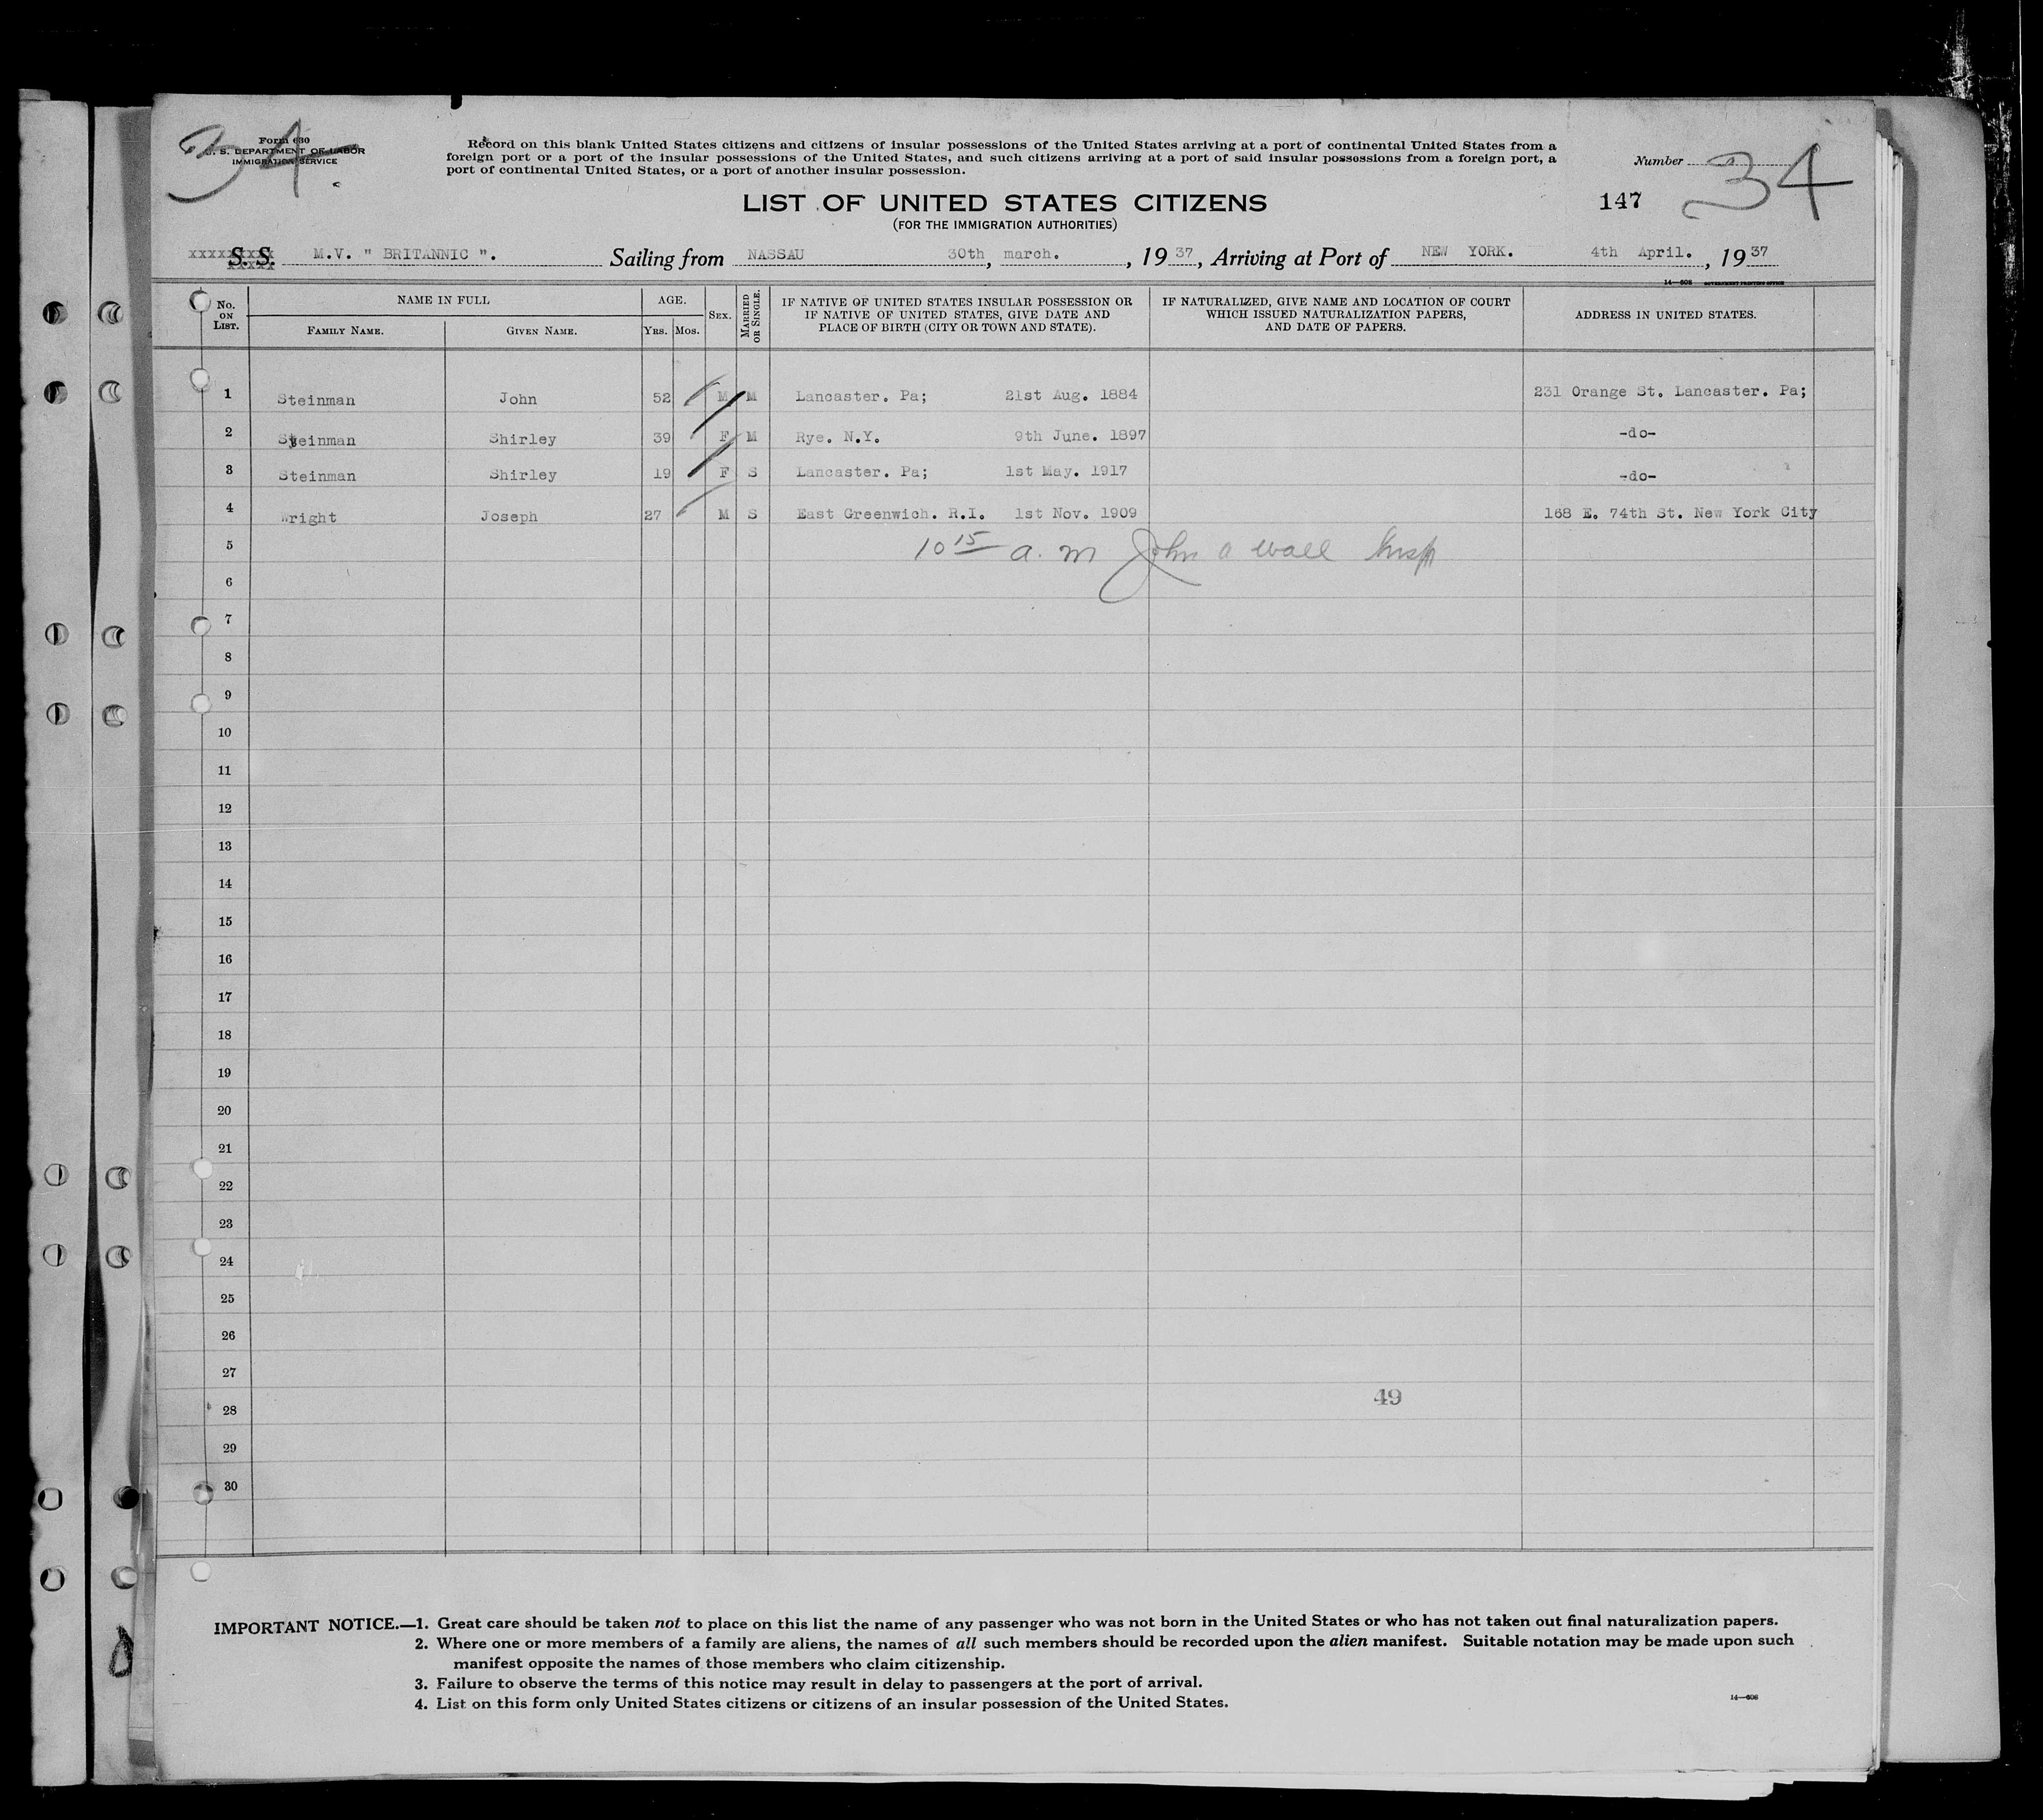 34.
Form 630
U. S. DEPARTMENT OF LABOR
IMMIGRATION SERVICE
Record on this blank United States citizens and citizens of insular possessions of the United States arriving at a port of continental United States from a
foreign port or a port of the insular possessions of the United States, and such citizens arriving at a port of said insular possessions from a foreign port, a
port of continental United States, or a port of another insular possession.
Number 34
LIST OF UNITED STATES CITIZENS
147
(FOR THE IMMIGRATION AUTHORITIES)
S. S. M.V. " BRITANNIC ". Sailing from NASSAU 30th, march. , 1937, Arriving at Port of NEW YORK. 4th April. , 1937
14—608 GOVERNMENT PRINTING OFFICE
No. ON LIST. NAME IN FULL FAMILY NAME. GIVEN NAME. AGE. YRS. MOS. SEX. MARRIED OR SINGLE. IF NATIVE OF UNITED STATES INSULAR POSSESSION OR IF NATIVE OF UNITED STATES, GIVE DATE AND PLACE OF BIRTH (CITY OR TOWN AND STATE). IF NATURALIZED, GIVE NAME AND LOCATION OF COURT WHICH ISSUED NATURALIZATION PAPERS, AND DATE OF PAPERS. ADDRESS IN UNITED STATES.
1 Steinman John 52 M M Lancaster. Pa; 21st Aug. 1884 231 Orange St. Lancaster. Pa;
2 Steinman Shirley 39 F M Rye. N.Y. 9th June. 1897 -do-
3 Steinman Shirley 19 F S Lancaster. Pa; 1st May. 1917 -do-
4 Wright Joseph 27 M S East Greenwich. R.I. 1st Nov. 1909 168 E. 74th St. New York City
5 10 15 a. m John a wall Insp
6
7
8
9
10
11
12
13
14
15
16
17
18
19
20
21
22
23
24
25
26
27
49
28
29
30
IMPORTANT NOTICE.—1. Great care should be taken not to place on this list the name of any passenger who was not born in the United States or who has not taken out final naturalization papers.
2. Where one or more members of a family are aliens, the names of all such members should be recorded upon the alien manifest. Suitable notation may be made upon such
manifest opposite the names of those members who claim citizenship.
3. Failure to observe the terms of this notice may result in delay to passengers at the port of arrival.
4. List on this form only United States citizens or citizens of an insular possession of the United States.
14—608